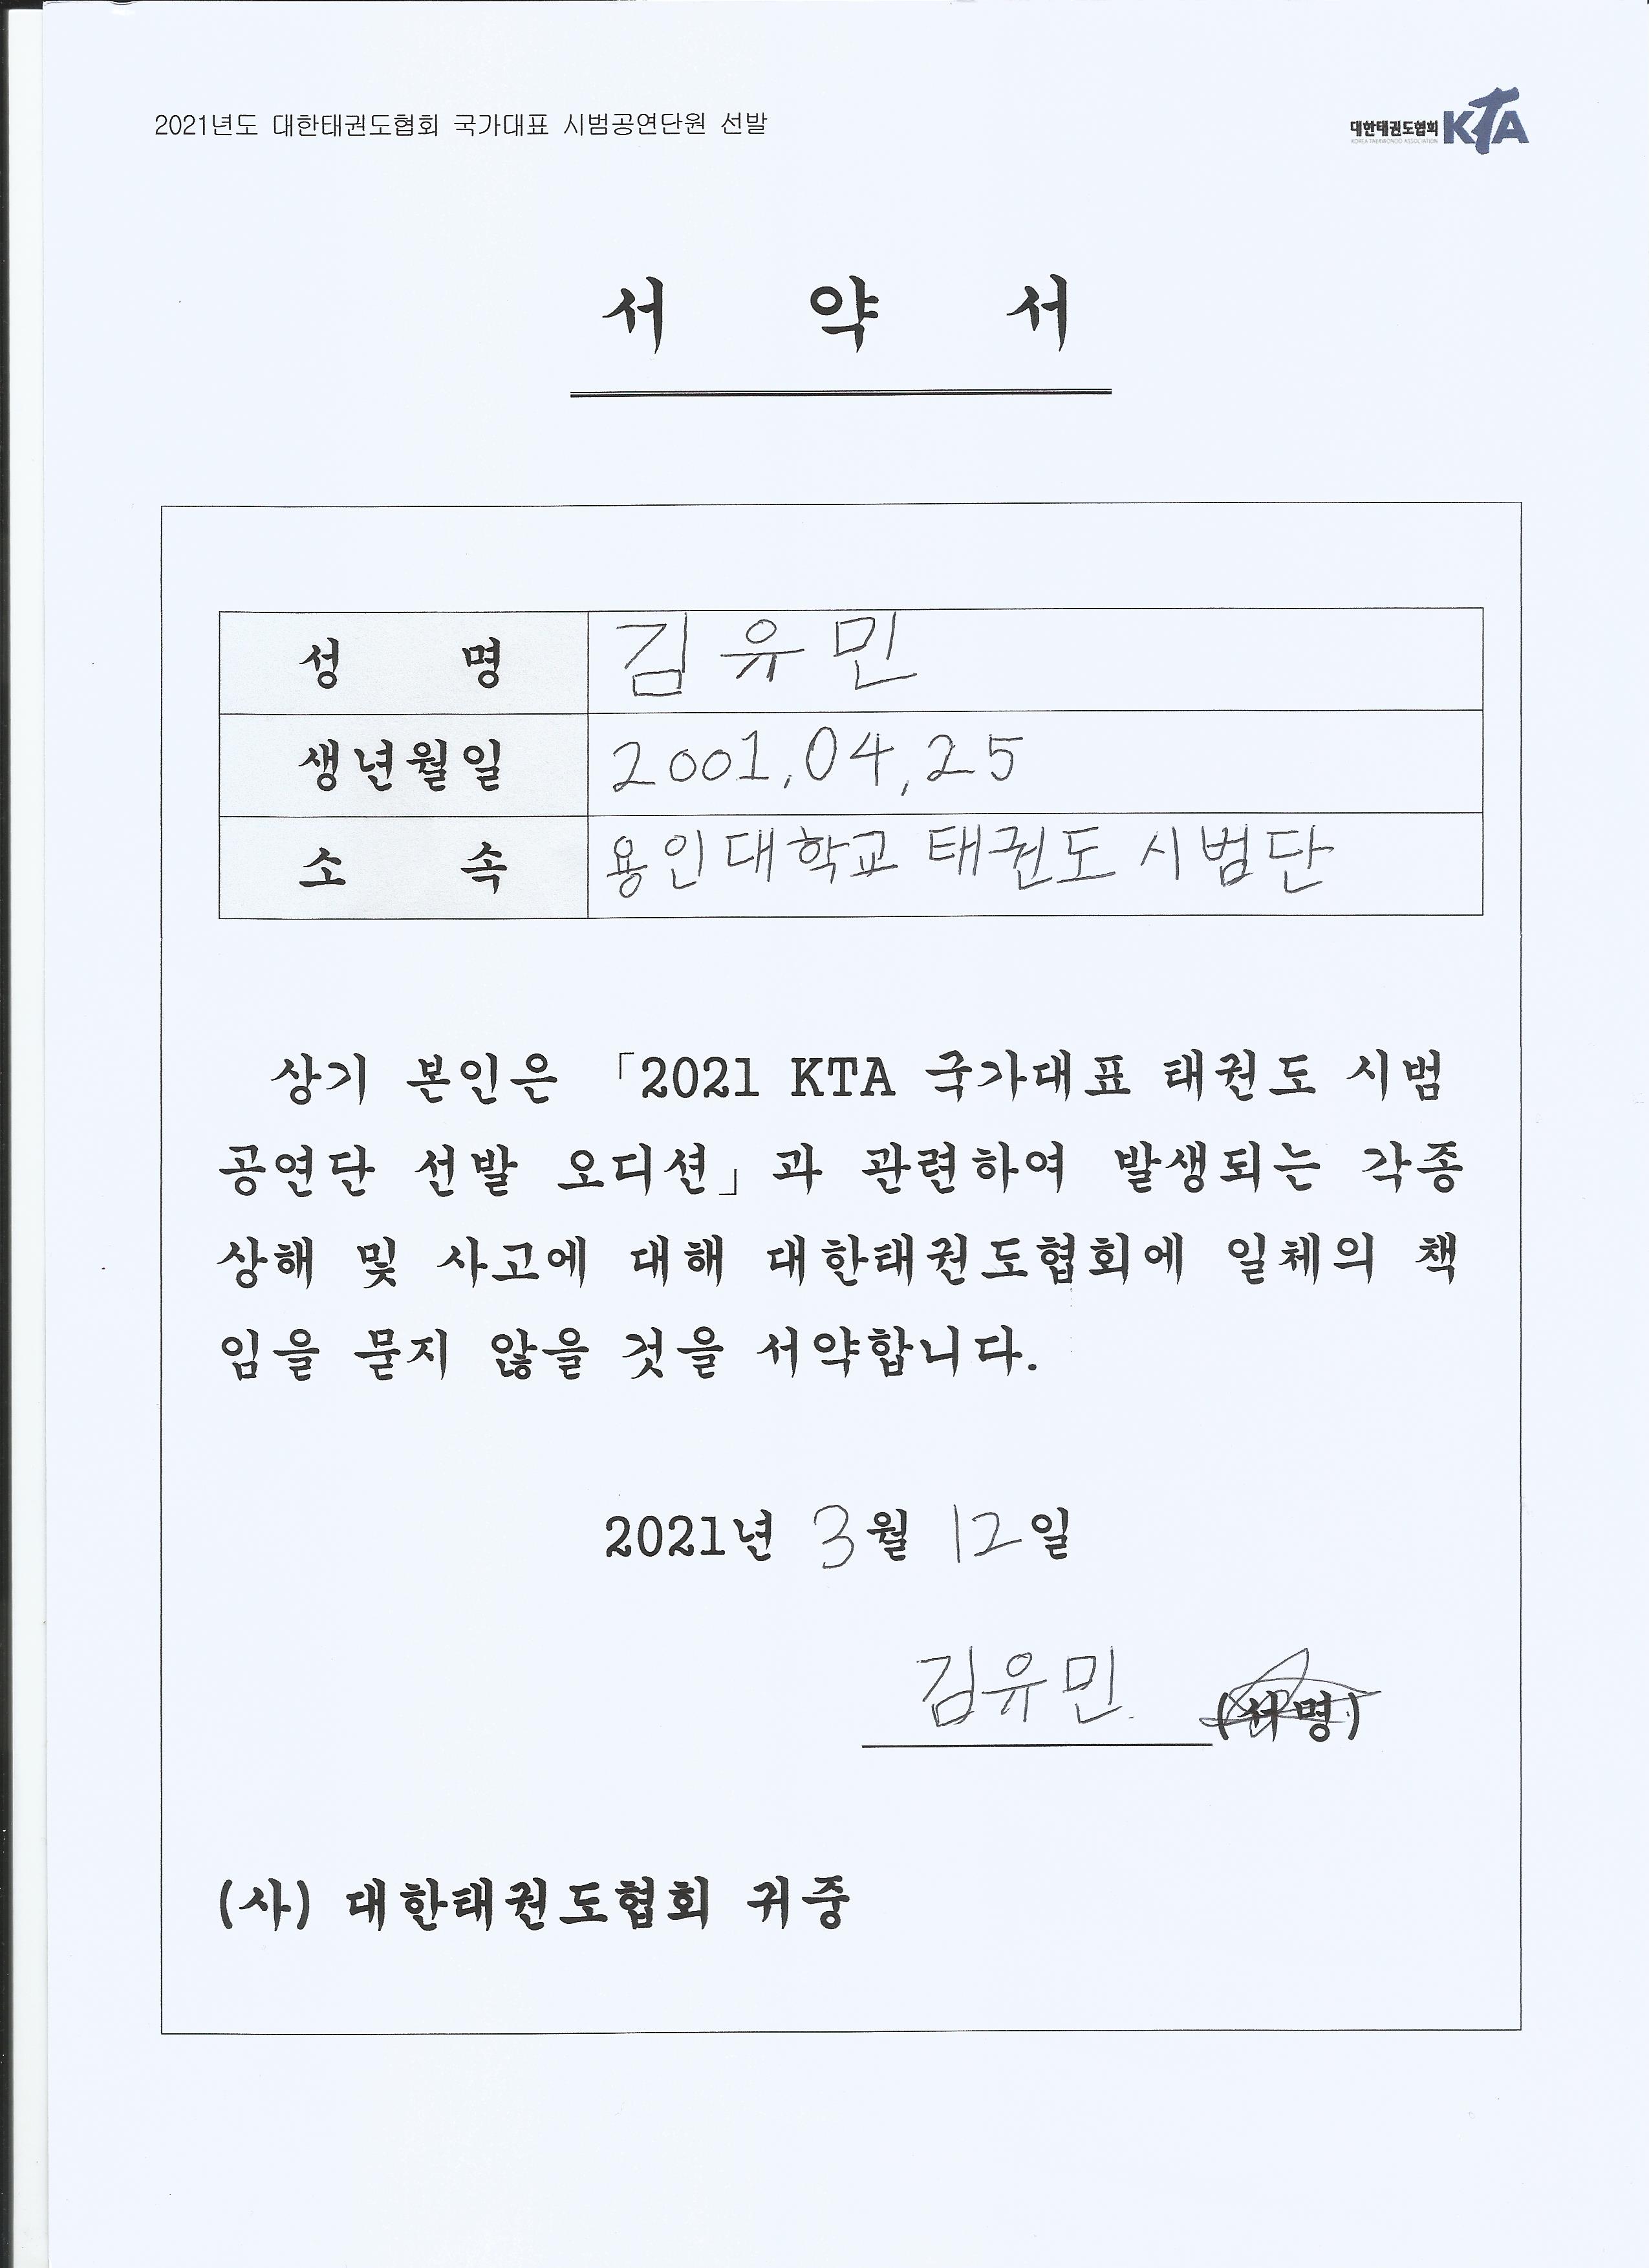 2021년도 대한태권도협회 국가대표 시범공연단원 선발
대한태권도협회 KTA
KOREA TAEKWONDO ASSOCIATION
서 약 서
성 명 김유민
생년월일 2001,04,25
소 속 용인대학교 태권도 시범단
상기 본인은 「2021 KTA 국가대표 태권도 시범
공연단 선발 오디션」과 관련하여 발생되는 각종
상해 및 사고에 대해 대한태권도협회에 일체의 책
임을 묻지 않을 것을 서약합니다.
2021년 3월 12일
김유민. (서명)
(사) 대한태권도협회 귀중